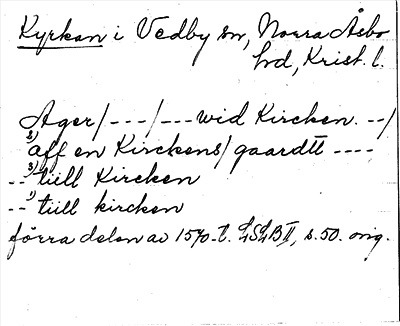 Kyrkan i Vedby sn, Norra Åsbo
hd, Krist. l.
Ager/---/---wid Kircken.--/
2) aff en Kirckens/gaardtt ----
--3) tiill Kircken
--1) tiill kircken
förra delen av 1570-t. LSLB II, s.50. orig.